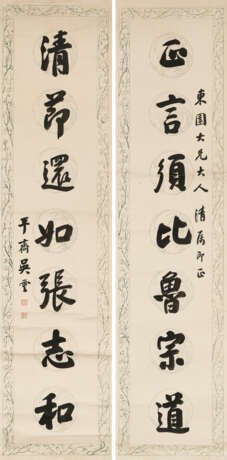 正言須比魯宗道
東園大兄大人清屬即正
清節還如張志和
平齋吳雲